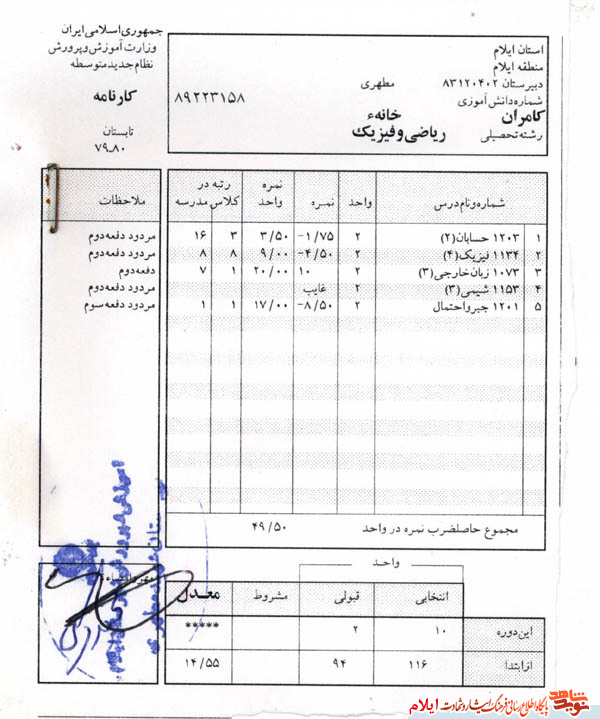 جمهوری اسلامی ایران
وزارت آموزش و پرورش
نظام جدید متوسطه
کارنامه
تابستان
۷۹ـ۸۰
استان ایلام
منطقه ایلام
دبیرستان ۸۳۱۲۰۴۰۲ مطهری
شماره دانش آموزی ۸۹۲۲۳۱۵۸
کامران خانهء
رشته تحصیلی ریاضی و فیزیک
شماره و نام درس واحد نمره نمره واحد رتبه در کلاس مدرسه ملاحظات
۱ ۱۲۰۳ حسابان(۲) ۲ ۱/۷۵− ۳/۵۰ ۳ ۱۶ مردود دفعه دوم
۲ ۱۱۳۴ فیزیک(۴) ۲ ۴/۵۰− ۹/۰۰ ۸ ۸ مردود دفعه دوم
۳ ۱۰۷۳ زبان خارجی(۳) ۲ ۱۰ ۲۰/۰۰ ۱ ۷ دفعه دوم
۴ ۱۱۵۳ شیمی(۳) ۲ غایب مردود دفعه دوم
۵ ۱۲۰۱ جبر و احتمال ۲ ۸/۵۰− ۱۷/۰۰ ۱ ۱ مردود دفعه سوم
مجموع حاصلضرب نمره در واحد ۴۹/۵۰
واحد
انتخابی قبولی مشروط معدل
این دوره ۱۰ ۲ *****
از ابتدا ۱۱۶ ۹۴ ۱۴/۵۵
مهر و امضاء
نوید شاهد
پایگاه اطلاع رسانی فرهنگ ایثار و شهادت ایلام